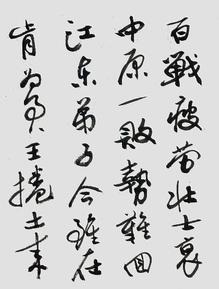 百戰疲劳壮士哀
中原一敗勢難回
江东弟子今雖在
肯为君王捲土来